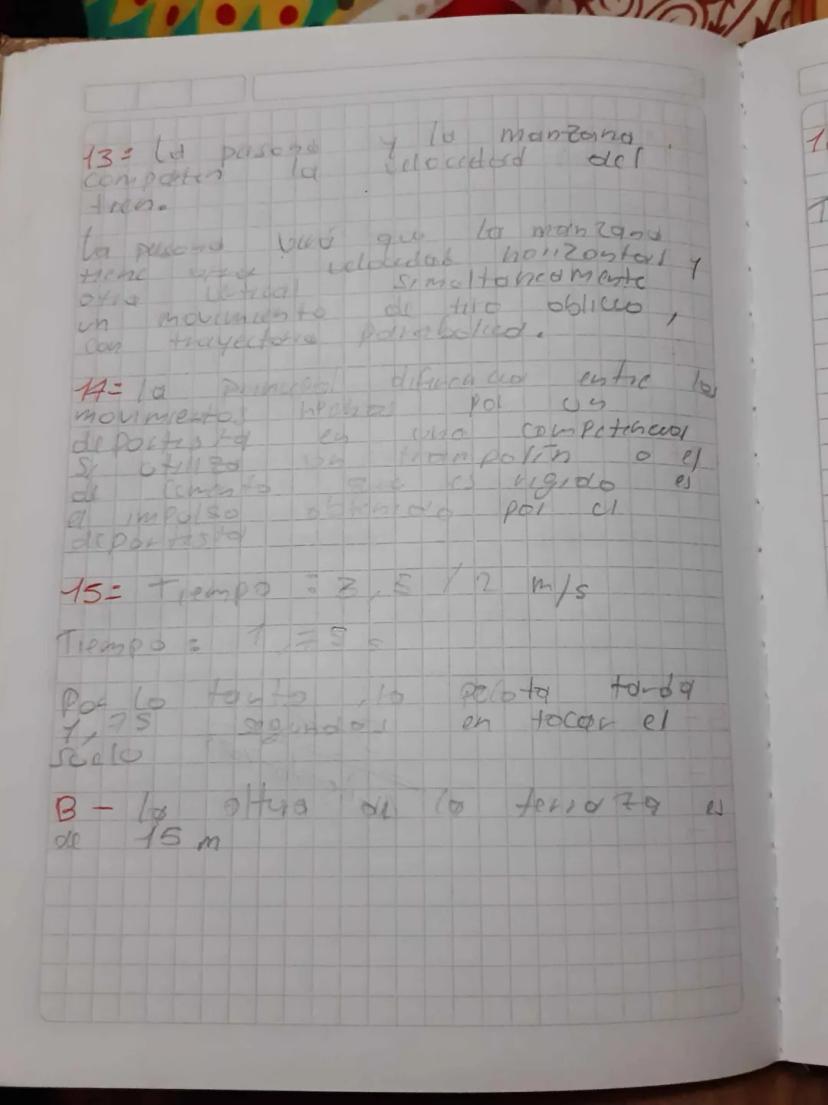 13= la persona y la manzana
comparten la velocidad del
tren.
la persona que la manzana
tiene una velocidad horizontal y
otra vertical simultaneamente
un movimiento de tiro oblicuo,
con trayectoria parabolica.
14= la principal diferencia entre los
movimientos hechos por un
deportista en una competencia
si utiliza un trampolin o el
de cemento que es rigido es
el impulso obtenido por el
deportista
15= Tiempo = 3,5 / 2 m/s
Tiempo =
Por lo tanto, la pelota tarda
1,75 segundos en tocar el
suelo
B- la altura de la terraza es
de 15 m
1